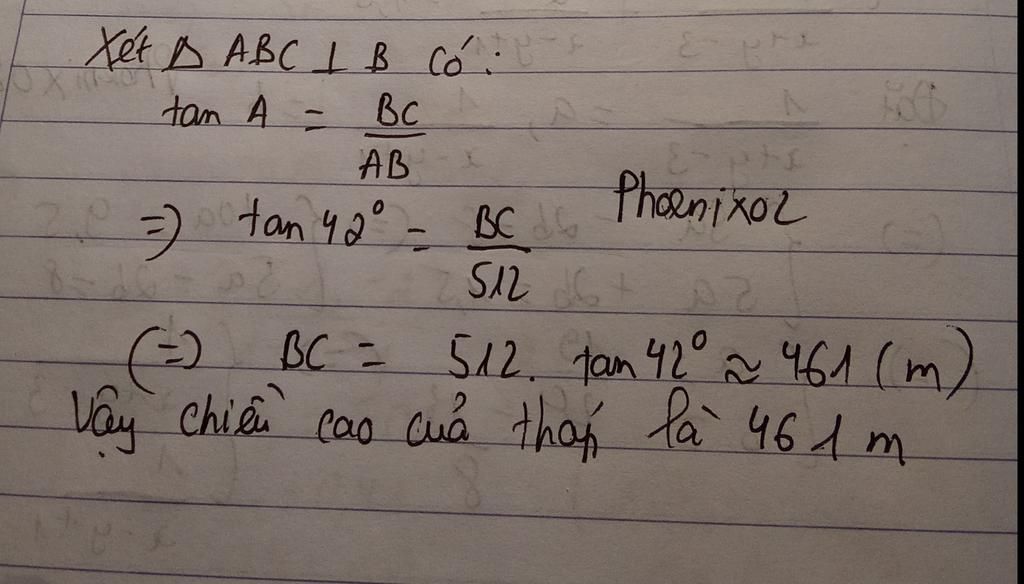 Xét Δ ABC ⊥ B có:
tan A = BC/AB
=> tan 42° = BC/512
Phoenix02
(=) BC = 512. tan 42° ≈ 461 (m)
Vậy chiều cao cuả tháp là 461 m